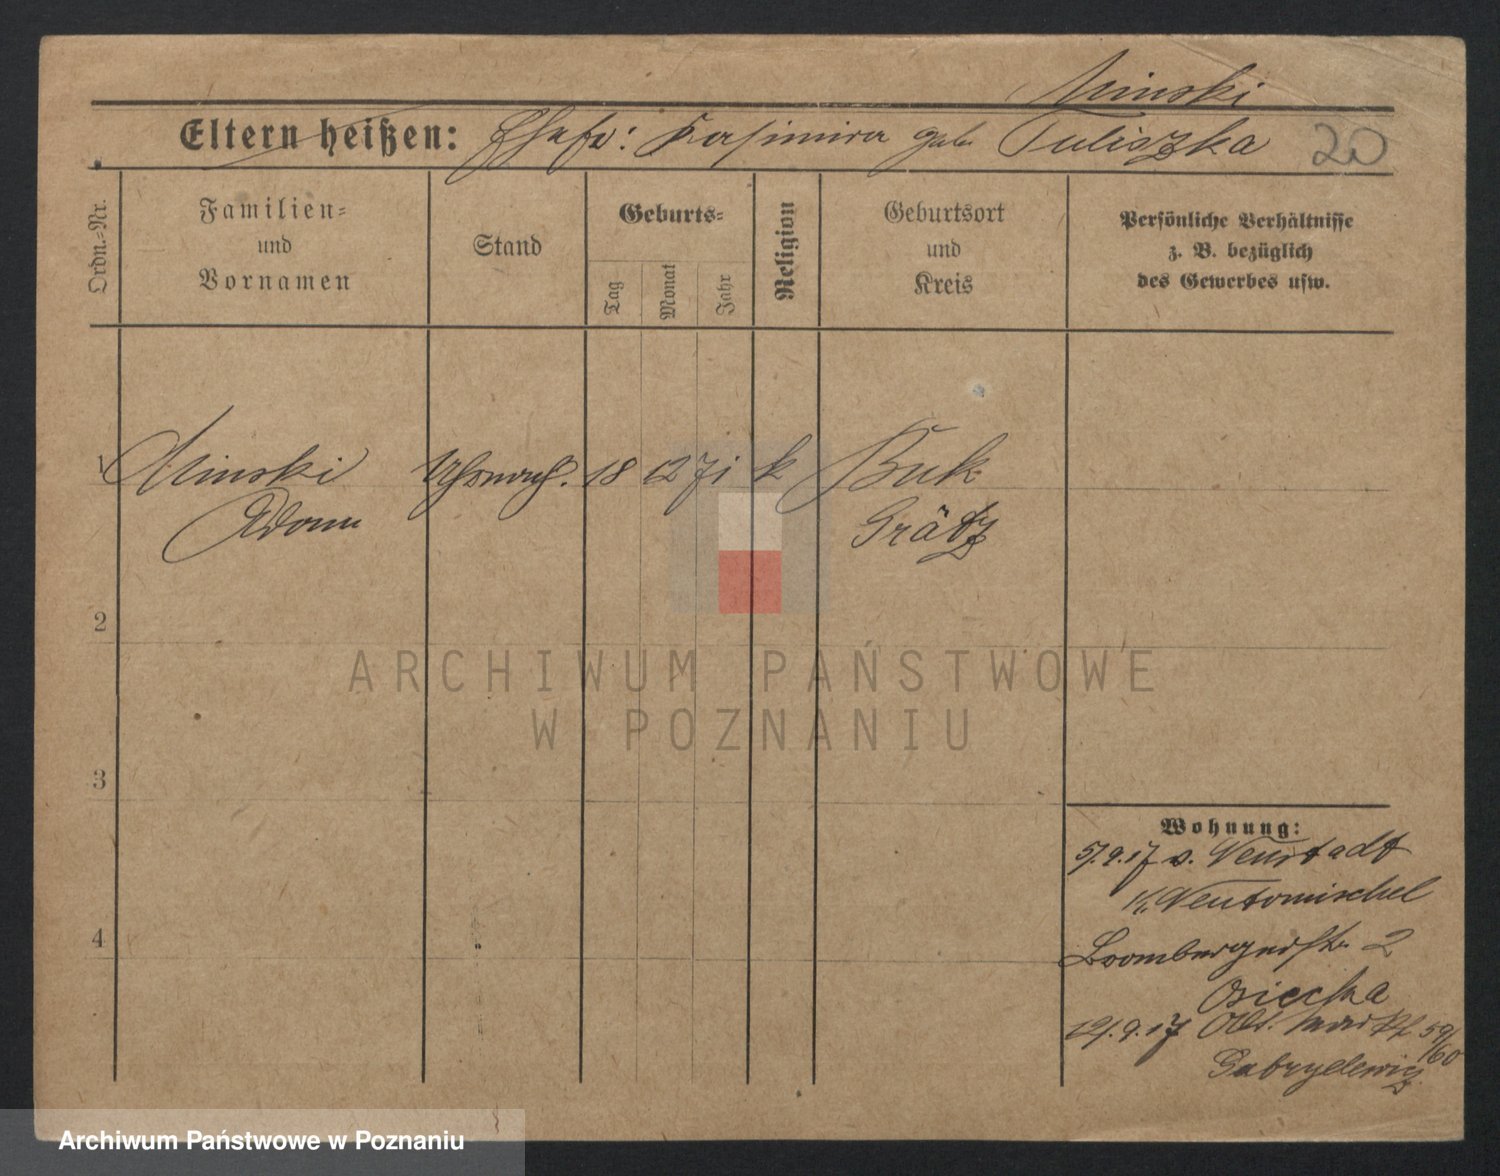 Minski
Eltern heißen: Ehefr: Kasimira geb. Tuliszka 20
Ordn.-Nr.
Familien-
und
Vornamen
Stand
Geburts-
Tag
Monat
Jahr
Religion
Geburtsort
und
Kreis
Persönliche Verhältnisse
z. B. bezüglich
des Gewerbes usw.
1 Minski Uhrmach. 18 12 71 k Buk
Adam Grätz
2
3
4
Wohnung:
5/9.17 v. Neustadt
Kr. Neutomischel
Brombergerstr. 2
Osiecka
12/.9.17 Alt. Markt 59/60
Gabryelewicz
ARCHIWUM PAŃSTWOWE
W POZNANIU
Archiwum Państwowe w Poznaniu